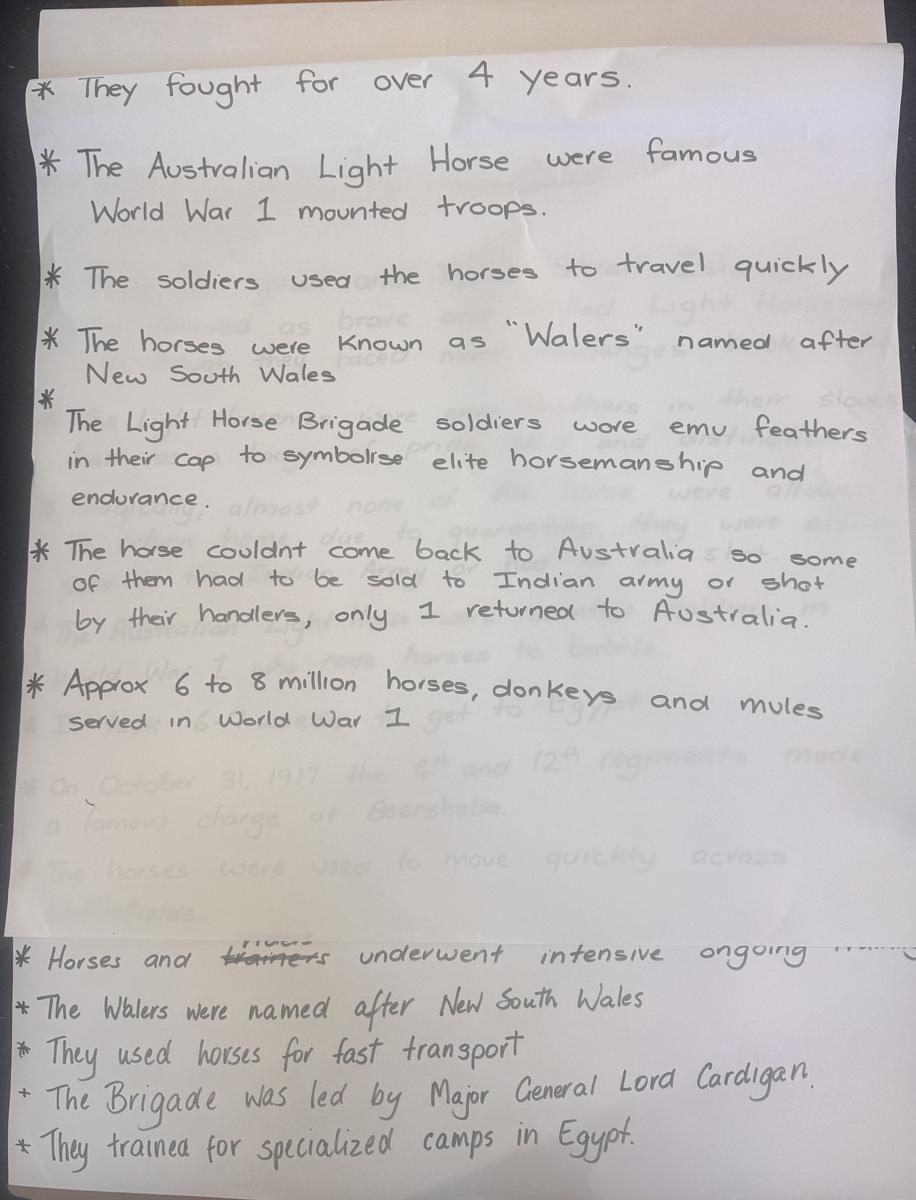 * They fought for over 4 years.
* The Australian Light Horse were famous
World War 1 mounted troops.
* The soldiers used the horses to travel quickly
* The horses were known as "Walers" named after
New South Wales
*
The Light Horse Brigade soldiers wore emu feathers
in their cap to symbolise elite horsemanship and
endurance.
* The horse couldnt come back to Australia so some
of them had to be sold to Indian army or shot
by their handlers, only 1 returned to Australia.
* Approx 6 to 8 million horses, donkeys and mules
served in World War 1
* On October 31, 1917 the 4th and 12th regiments made
a famous charge at Beersheba.
* The horses were used to move quickly across
fields
* Horses and trainers underwent intensive ongoing
* The Walers were named after New South Wales
* They used horses for fast transport
+ The Brigade was led by Major General Lord Cardigan.
* They trained for specialized camps in Egypt.